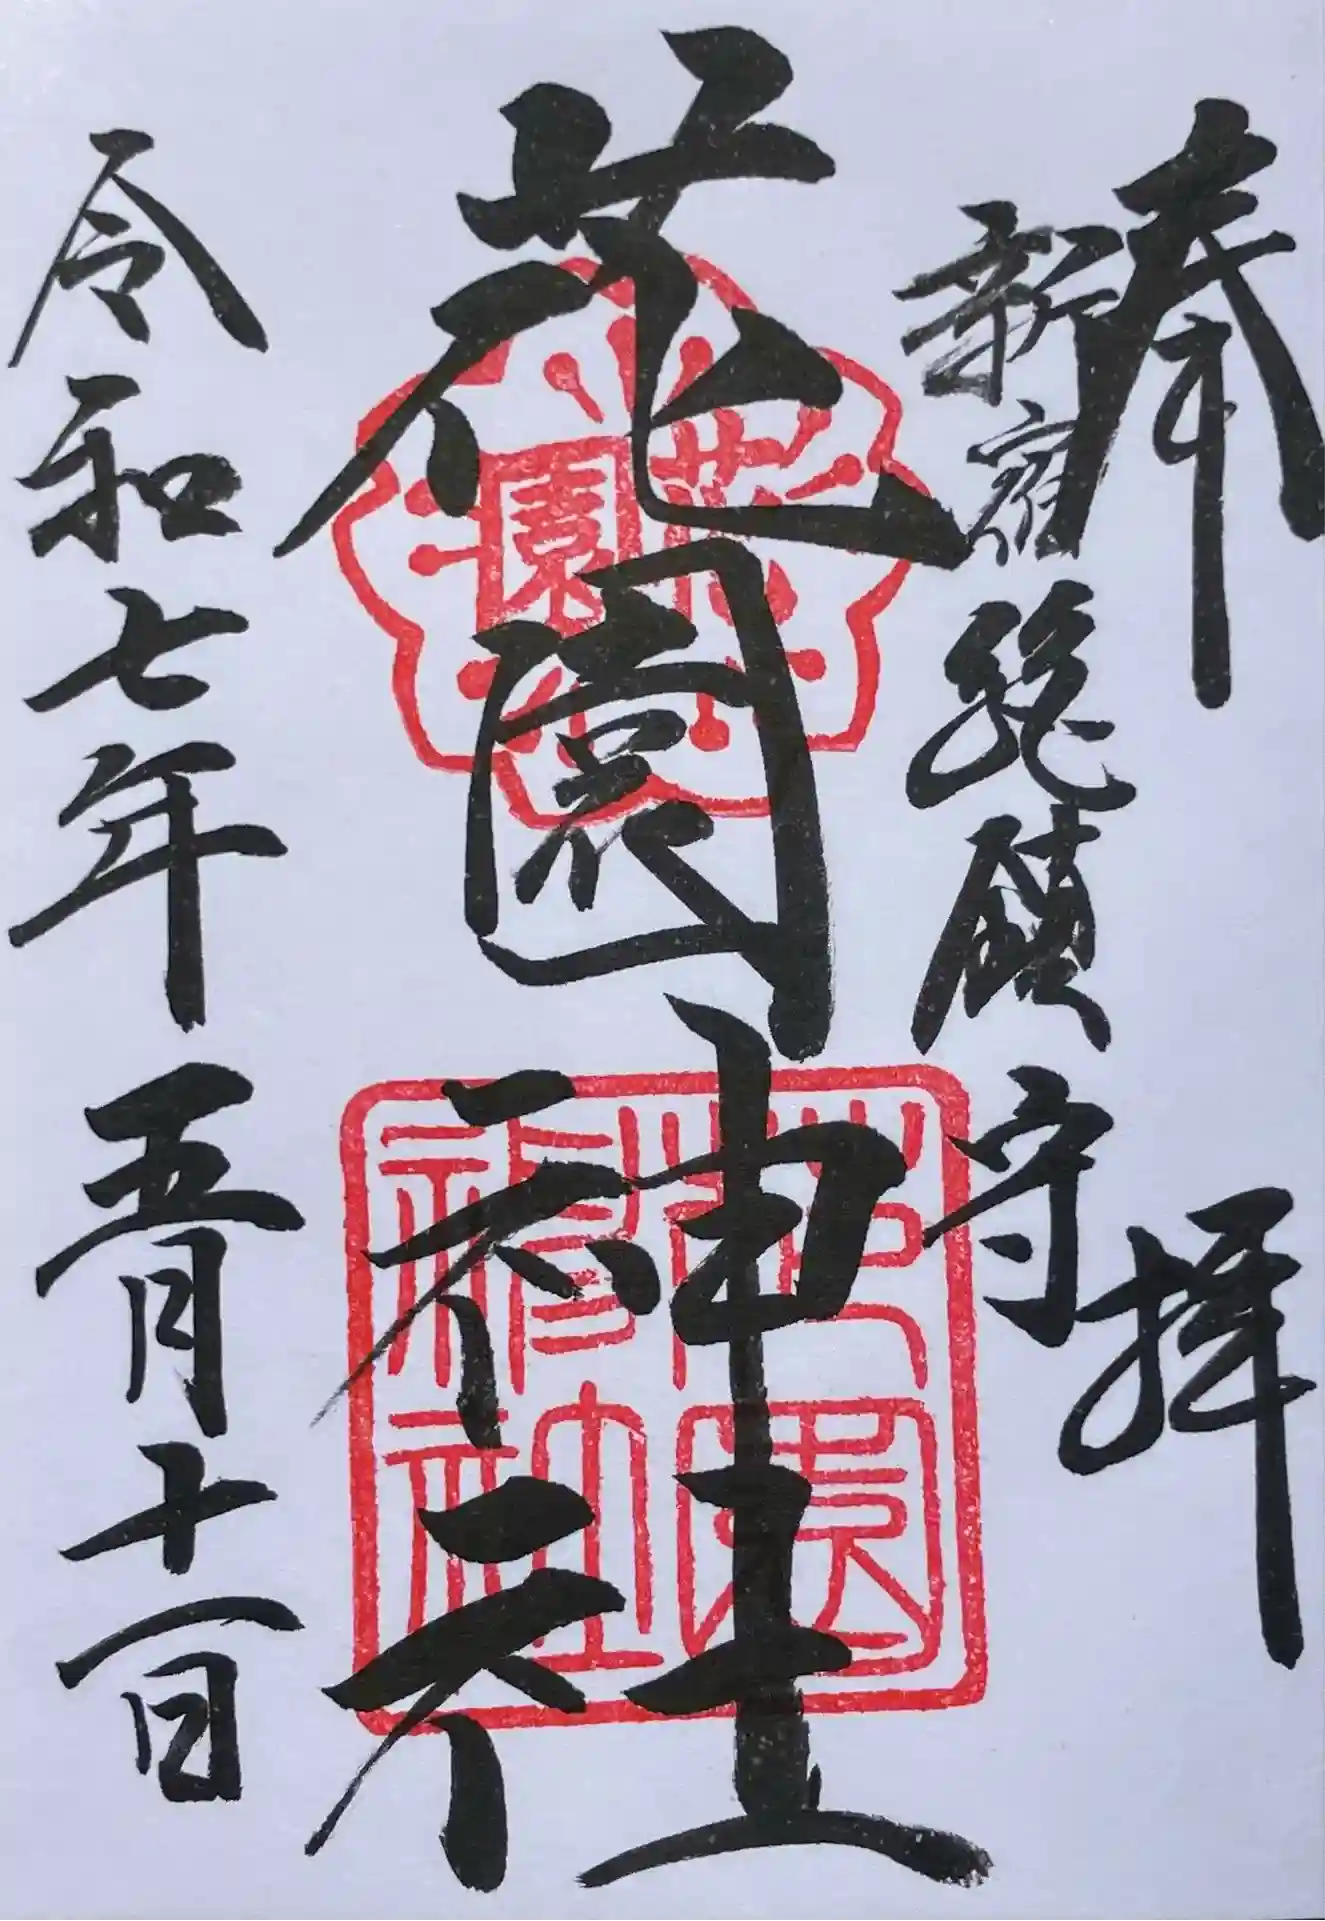 奉拝
新宿総鎮守
花園神社
花園
花園神社
令和七年五月十一日